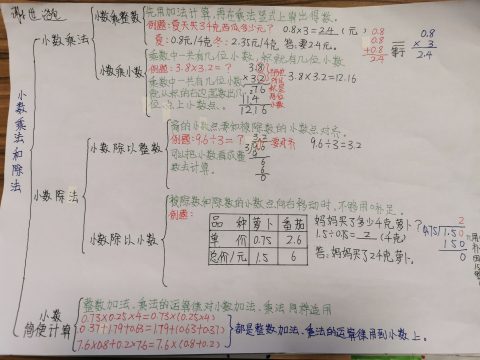 小数乘法和除法
小数乘法
小数乘整数
先用加法计算,再在乘法竖式上算出得数。
例题:夏天买3千克西瓜多少元?
0.8×3=2.4(元)
夏:0.8元/千克 冬:2.35元/千克 答:要2.4元。
0.8
0.8
+0.8
2.4
等于
0.8
× 3
2.4
小数乘小数
乘数中一共有几位小数,积就有几位小数
例题:3.8×3.2=?
3.8×3.2=12.16
乘数中一共有几位小数
3.8
×3.2
76
114
1216
小数除法
小数除以整数
商的小数点要和被除数的小数点对齐。
例题:9.6÷3=?
9.6÷3=3.2
小数除以小数
被除数和除数的小数点向右移动时,不够用0补足。
例题:
品 种 萝卜 番茄
单 价 0.75 2.6
总价/元 1.5 6
妈妈买了多少千克萝卜?
1.5÷0.75=2(千克)
答:妈妈买了2千克萝卜。
2
0.75/1.50
150
0
小数
简便计算
整数加法、乘法的运算律对小数加法、乘法同样适用
0.73×0.25×4=0.73×(0.25×4)
0.37+1.79+0.63=1.79+(0.63+0.37)
7.6×0.8+0.2×7.6=7.6×(0.8+0.2)
都是整数加法、乘法的运算律用到小数上。